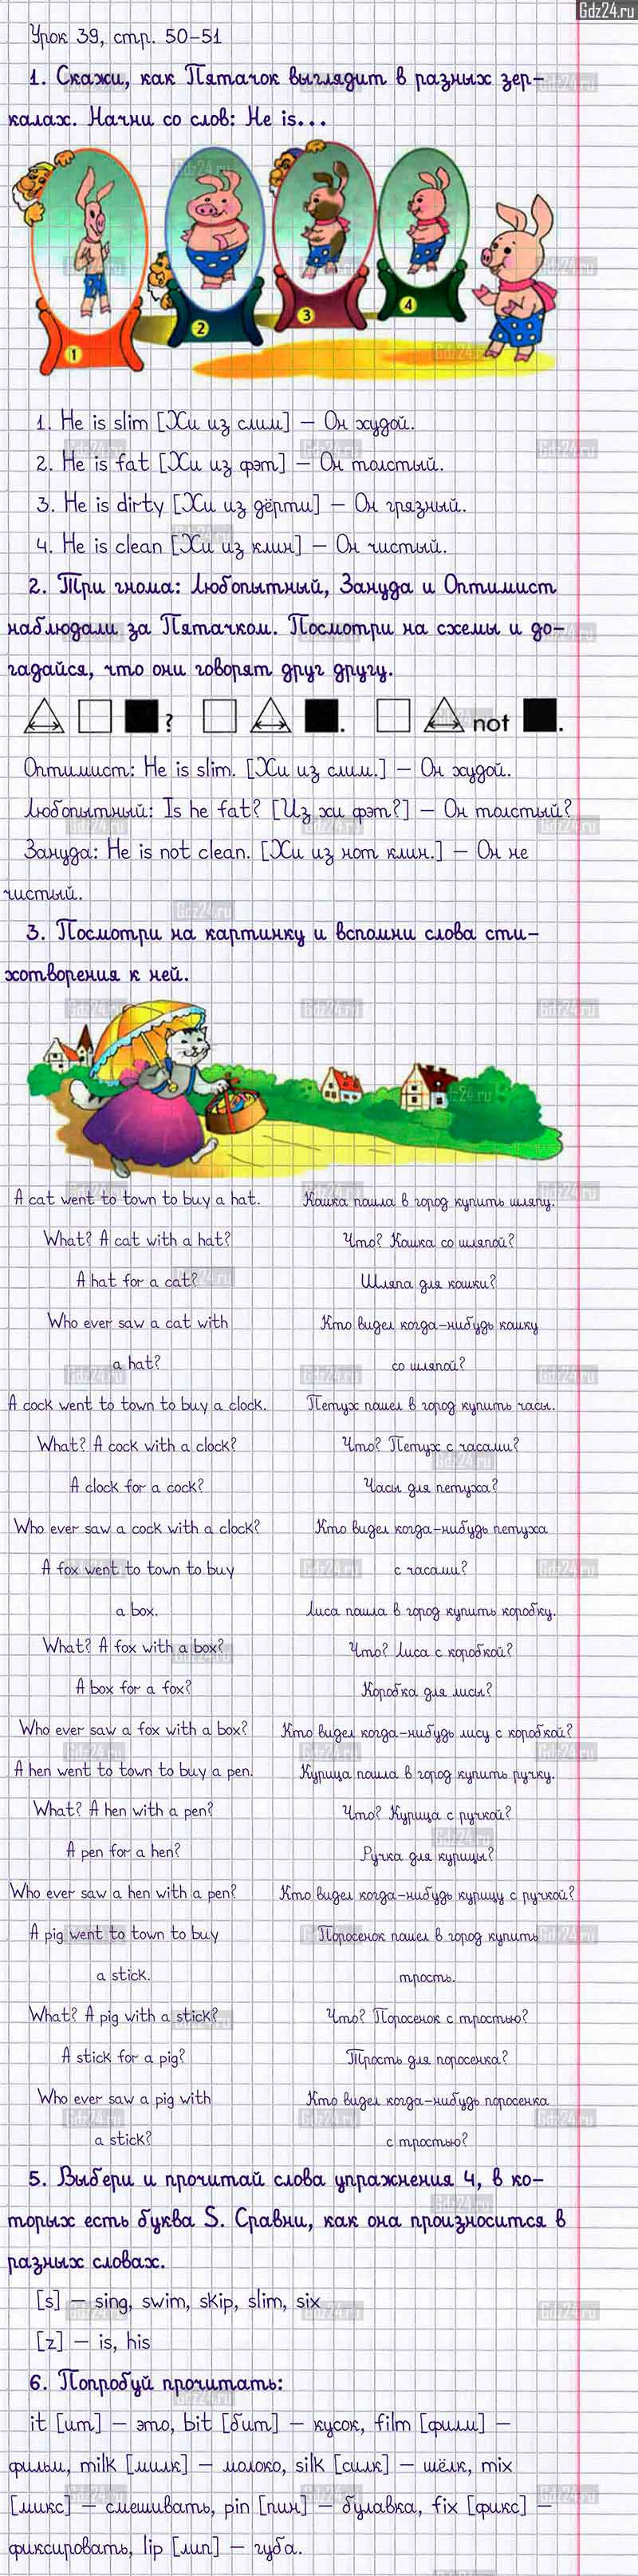 Gdz24.ru
Урок 39, стр. 50-51
1. Скажи, как Пятачок выглядит в разных зер-
калах. Начни со слов: He is...
1
2
3
4
1. He is slim [Хи из слим] – Он худой.
2. He is fat [Хи из фэт] – Он толстый.
3. He is dirty [Хи из дёрти] – Он грязный.
4. He is clean [Хи из клин] – Он чистый.
2. Три гнома: Любопытный, Зануда и Оптимист
наблюдали за Пятачком. Посмотри на схемы и до-
гадайся, что они говорят друг другу.
? . not .
Оптимист: He is slim. [Хи из слим.] – Он худой.
Любопытный: Is he fat? [Из хи фэт?] – Он толстый?
Зануда: He is not clean. [Хи из нот клин.] – Он не
чистый.
3. Посмотри на картинку и вспомни слова сти-
хотворения к ней.
A cat went to town to buy a hat. Кошка пошла в город купить шляпу.
What? A cat with a hat? Что? Кошка со шляпой?
A hat for a cat? Шляпа для кошки?
Who ever saw a cat with Кто видел когда-нибудь кошку
a hat? со шляпой?
A cock went to town to buy a clock. Петух пошел в город купить часы.
What? A cock with a clock? Что? Петух с часами?
A clock for a cock? Часы для петуха?
Who ever saw a cock with a clock? Кто видел когда-нибудь петуха
A fox went to town to buy с часами?
a box. Лиса пошла в город купить коробку.
What? A fox with a box? Что? Лиса с коробкой?
A box for a fox? Коробка для лисы?
Who ever saw a fox with a box? Кто видел когда-нибудь лису с коробкой?
A hen went to town to buy a pen. Курица пошла в город купить ручку.
What? A hen with a pen? Что? Курица с ручкой?
A pen for a hen? Ручка для курицы?
Who ever saw a hen with a pen? Кто видел когда-нибудь курицу с ручкой?
A pig went to town to buy Поросенок пошел в город купить
a stick. трость.
What? A pig with a stick? Что? Поросенок с тростью?
A stick for a pig? Трость для поросенка?
Who ever saw a pig with Кто видел когда-нибудь поросенка
a stick? с тростью?
5. Выбери и прочитай слова упражнения 4, в ко-
торых есть буква S. Сравни, как она произносится в
разных словах.
[s] – sing, swim, skip, slim, six
[z] – is, his
6. Попробуй прочитать:
it [ит] – это, bit [бит] – кусок, film [филм] –
фильм, milk [милк] – молоко, silk [силк] – шёлк, mix
[микс] – смешивать, pin [пин] – булавка, fix [фикс] –
фиксировать, lip [лип] – губа.